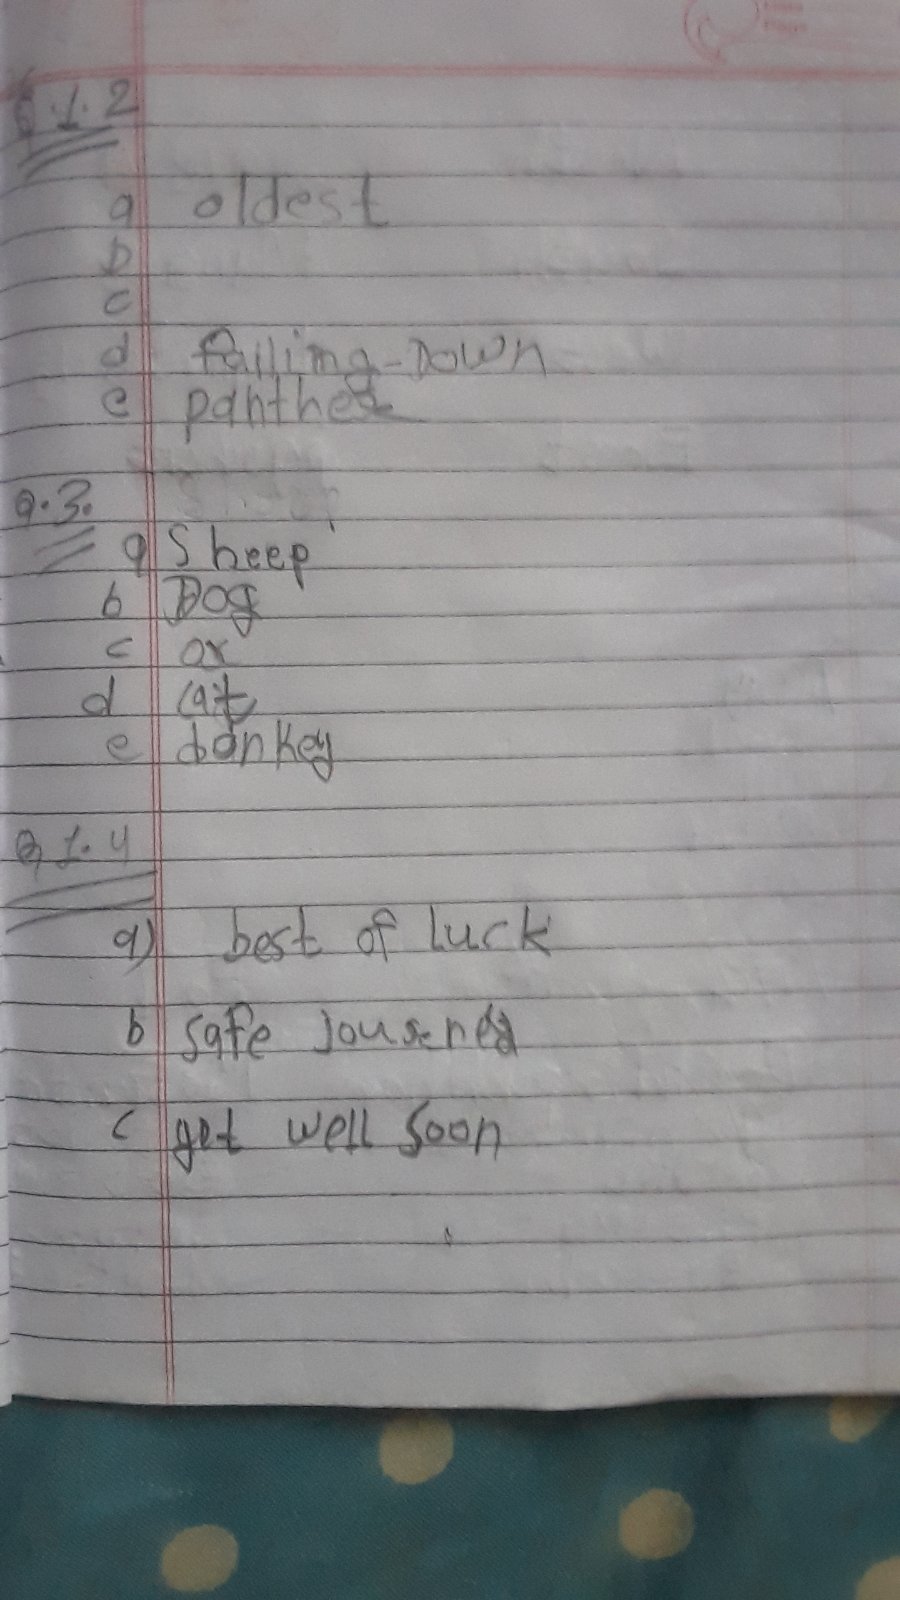 Q.1.2
a oldest
b
c
d failing-Down
e panther
Q.3.
a Sheep
b Dog
c ox
d cat
e donkey
Q 1.4
a) best of luck
b safe
c get well soon